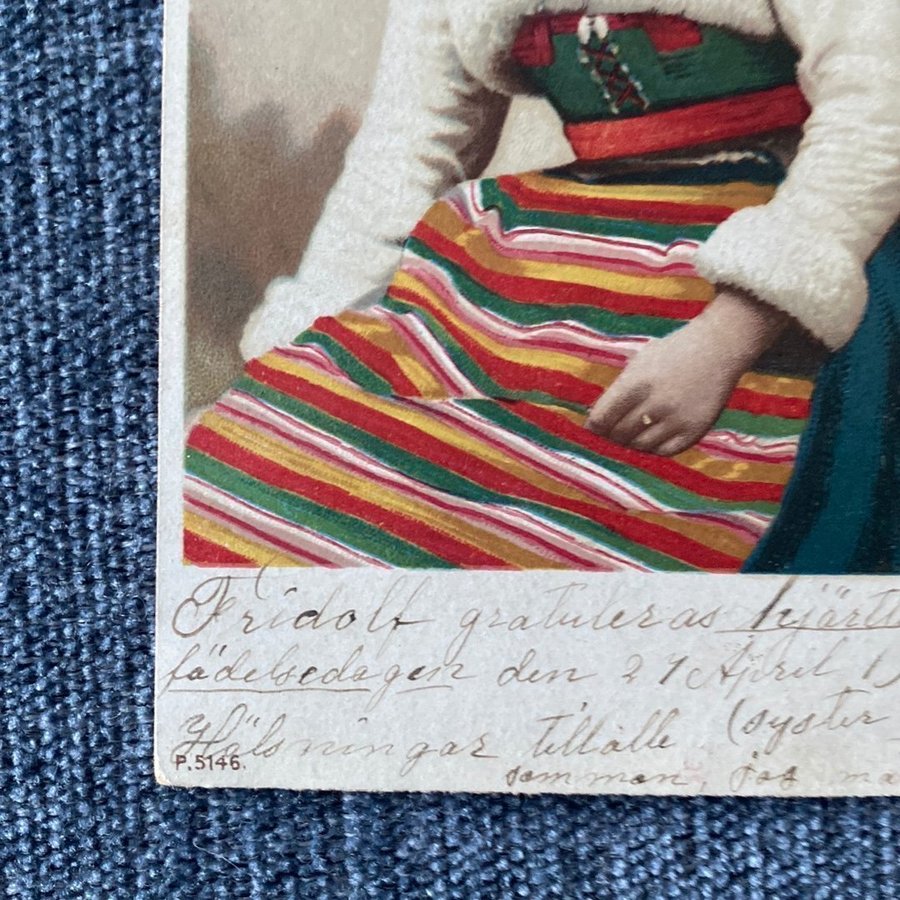 Fridolf gratuleras hjärt
födelsedagen den 27 April 1
Hälsningar till alla (syster
P.5146.
som man, jag ma